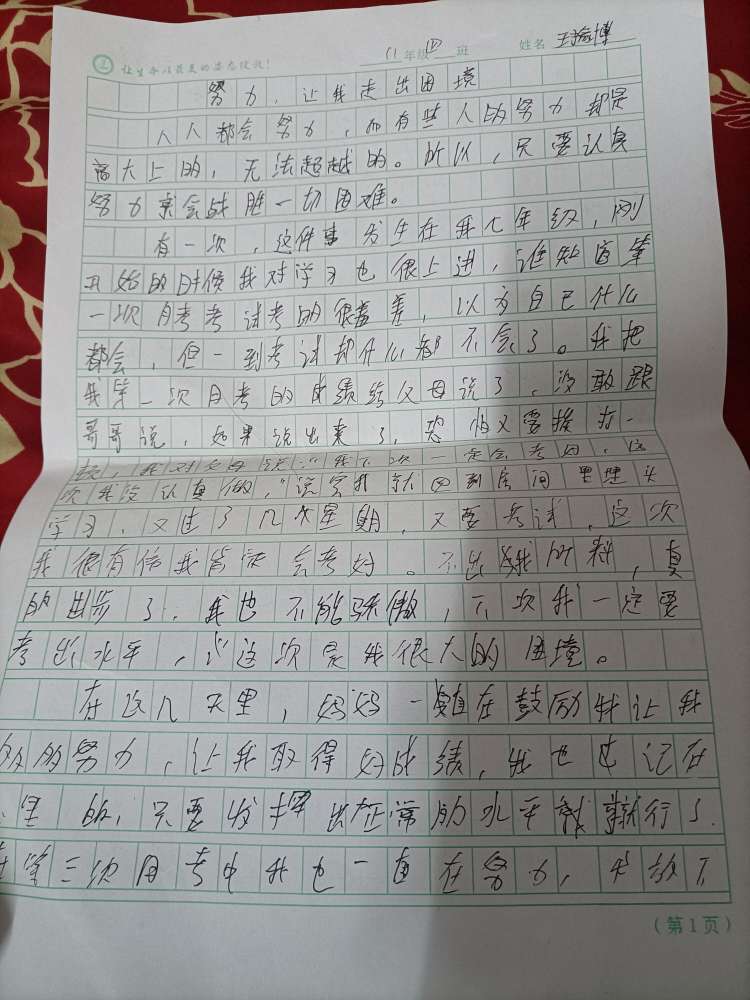 让生命以最美的姿态绽放!
年级 班 姓名 王瑜博
努力,让我走出困境
人人都会努力,而有些人的努力却是
高大上的,无法超越的。所以,只要认真
努力就会战胜一切困难。
有一次,这件事发生在我七年级,刚
开始的时候我对学习也很上进,谁知道第
一次月考考试考的很差,以为自己什么
都会,但一到考试却什么都不会了。我把
我第一次月考的成绩给父母说了,没敢跟
哥哥说,如果说出来了,恐怕又要挨打一
顿,我对父母说:"我下次一定会考好,这
次我没认真做,"说完我就回到房间里埋头
学习,又过了几个星期,又要考试,这次
我很有信我肯定会考好。不出我所料,真
的进步了,我也不能骄傲,下次我一定要
考出水平,"这次是我很大的困境。
在这几天里,妈妈一直在鼓励我让我
多多的努力,让我取得好成绩,我也牢记在
里的,只要发挥出正常的水平就行了.
在第三次月考中我也一直在努力,不放下
(第1页)